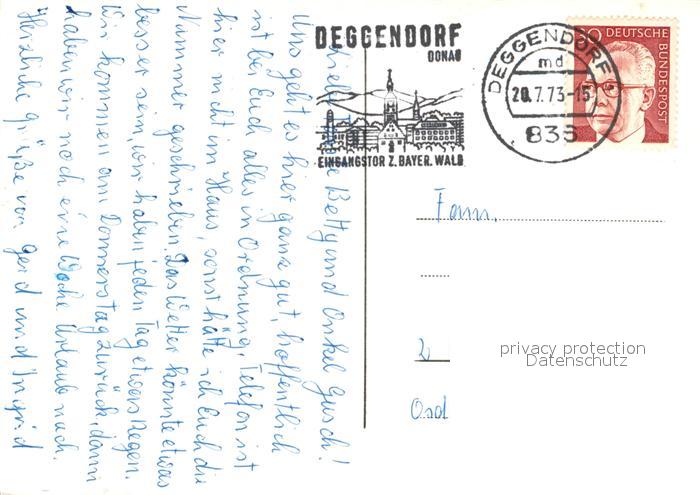 Liebe Betty und Onkel Gusch!
Uns geht es hier ganz gut, hoffentlich
ist bei Euch alles in Ordnung. Telefon ist
hier nicht im Haus, sonst hätte ich Euch die
Nummer geschrieben. Das Wetter könnte etwas
besser sein, wir haben jeden Tag etwas Regen.
Wir kommen am Donnerstag zurück, dann
haben wir noch eine Woche Urlaub nach.
Herzliche Grüße von Gerd und Ingrid
DEGGENDORF
DONAU
EINGANGSTOR Z. BAYER. WALD
DEGGENDORF
md
20.7.73-15
836
DEUTSCHE BUNDESPOST
Fam.
2
privacy protection
Datenschutz